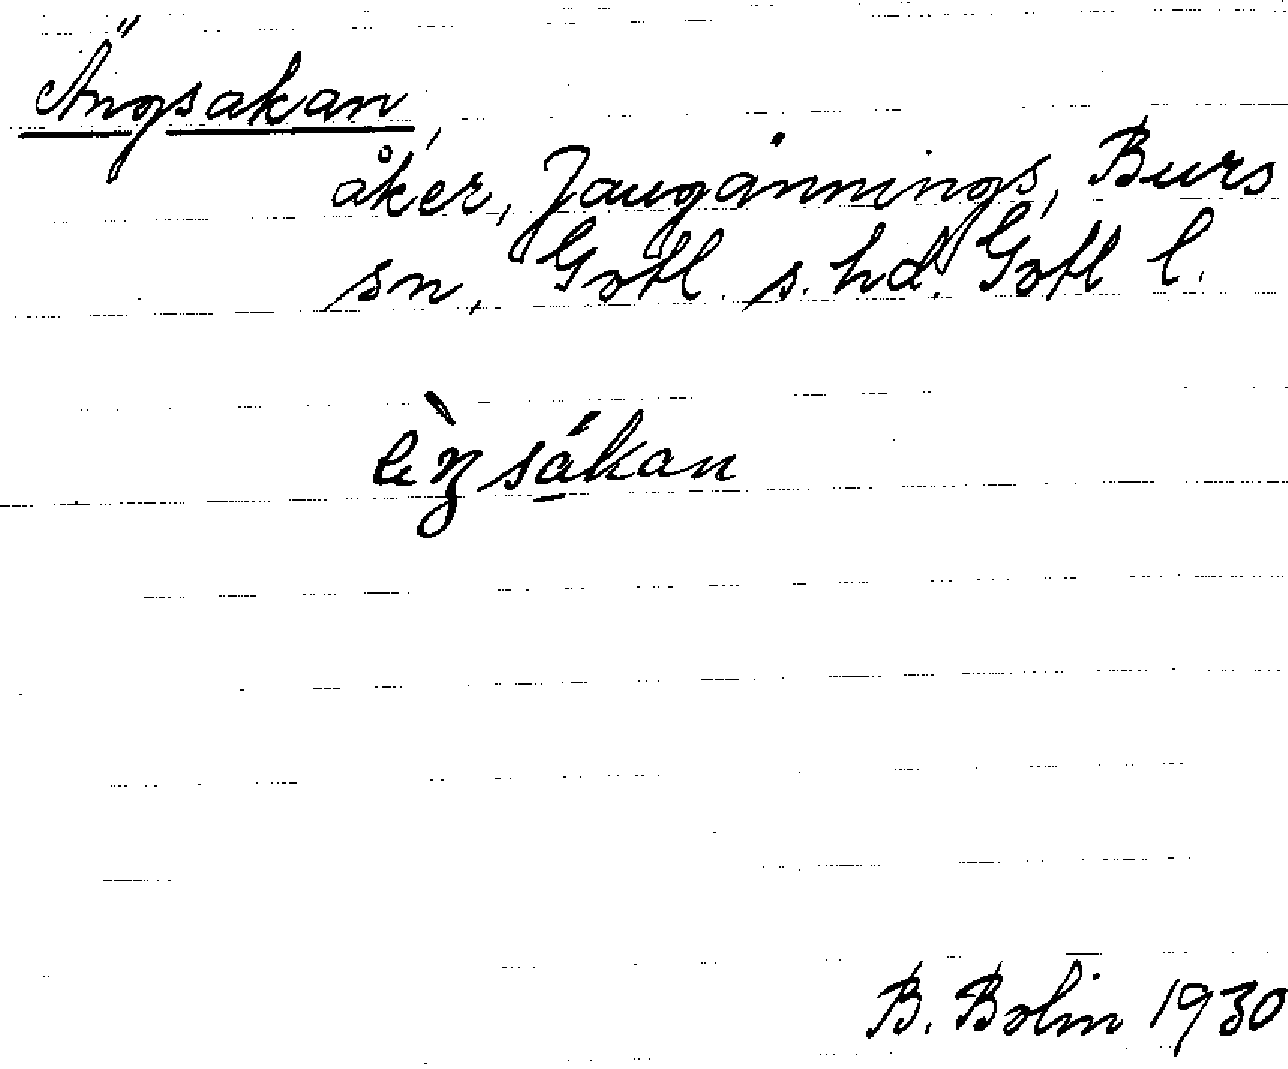 Ängsakan,
åker, Jaugännings, Burs
sn, Gotl. s. hd. Gotl l.
B. Bolin 1930